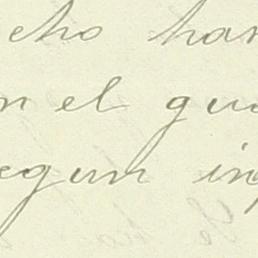 cho han
n el gua
egun in